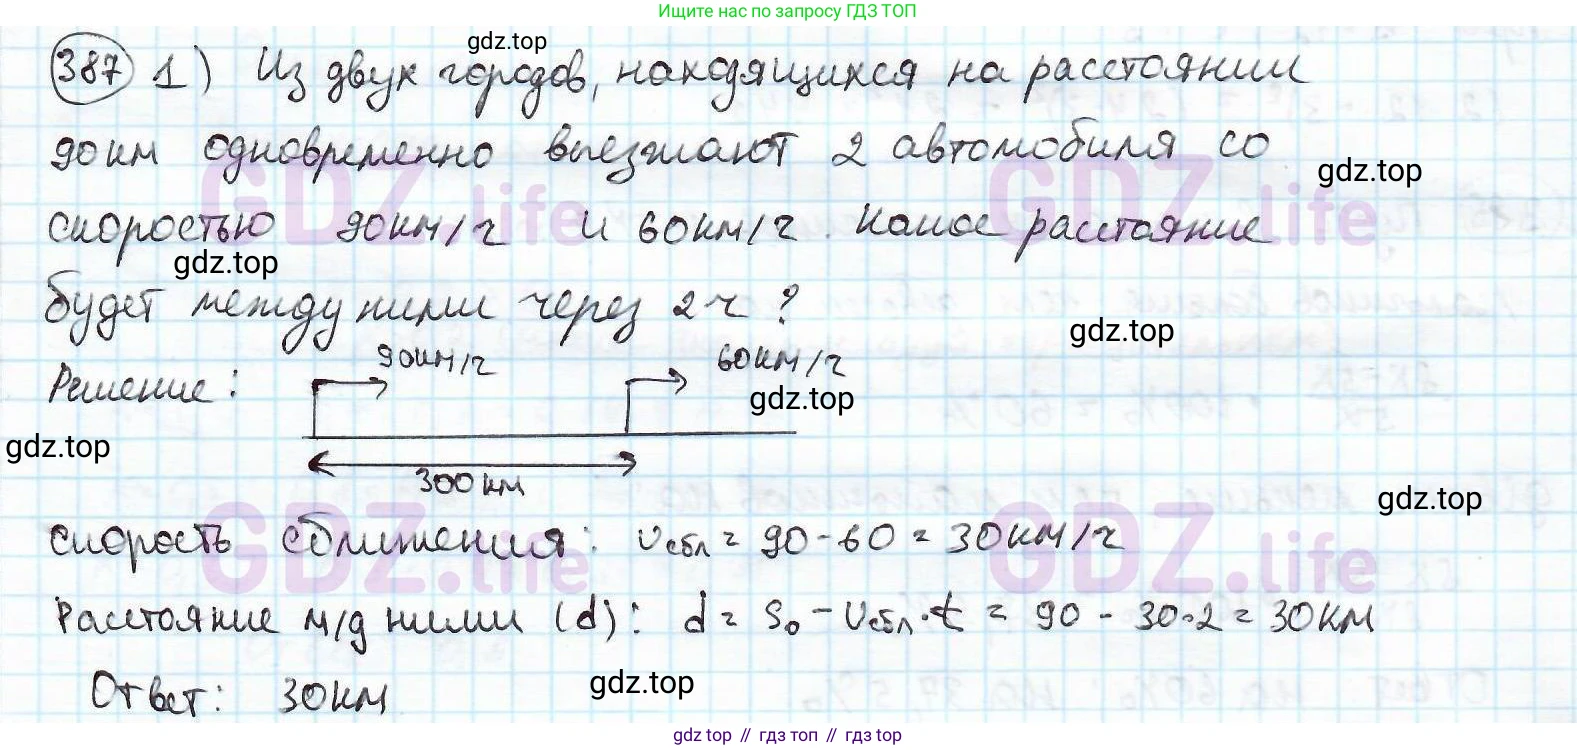 Ищите нас по запросу ГДЗ ТОП
gdz.top
387 1) Из двух городов, находящихся на расстоянии
90 км одновременно выезжают 2 автомобиля со
gdz.top
GDZ.life GDZ.life
скоростью 90км/ч и 60км/ч. Какое расстояние
gdz.top
будет между ними через 2 ч?
gdz.top
90км/ч 60км/ч
Решение:
gdz.top
gdz.top
300 км
gdz.top
скорость сближения: vсбл = 90 - 60 = 30км/ч
GDZ.life GDZ.life
Расстояние м/д ними (d): d = S₀ - vсбл·t = 90 - 30·2 = 30 км
gdz.top
Ответ: 30км
gdz top // гдз топ // gdz top